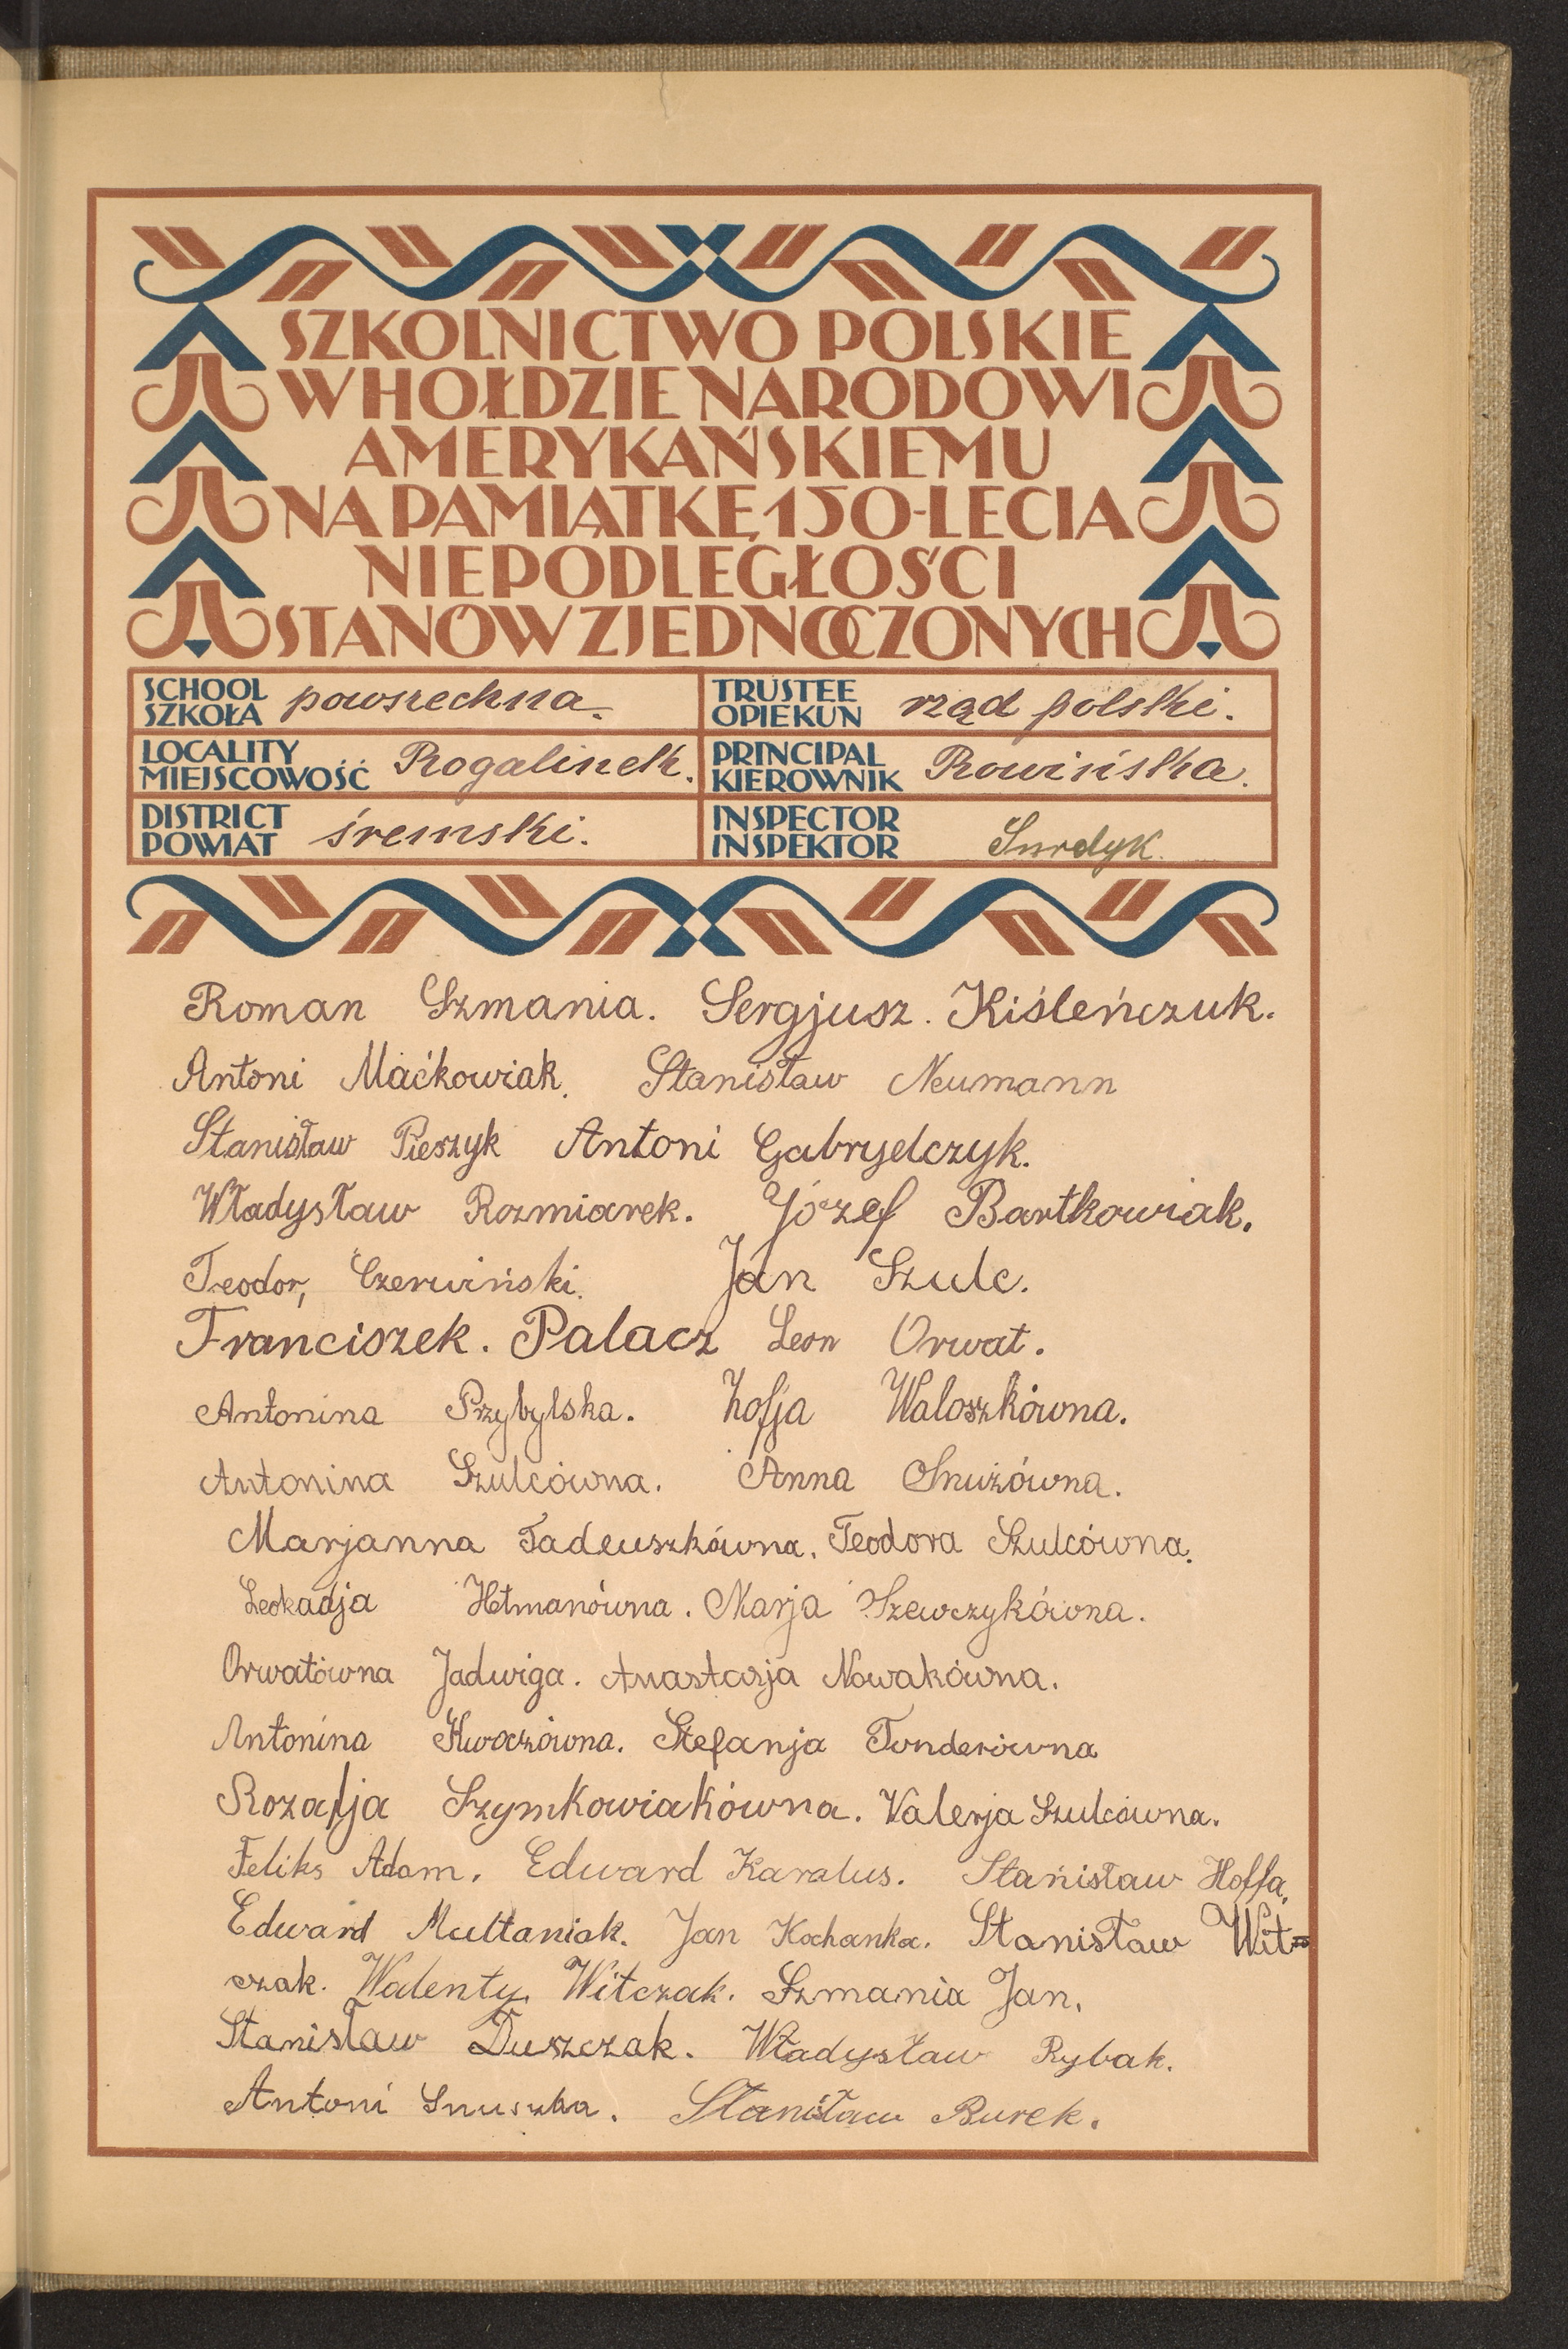 SZKOLNICTWO POLSKIE
W HOŁDZIE NARODOWI
AMERYKAŃSKIEMU
NA PAMIĄTKĘ 150-LECIA
NIEPODLEGŁOŚCI
STANÓW ZJEDNOCZONYCH
SCHOOL
SZKOŁA powszechna.
TRUSTEE
OPIEKUN rząd polski.
LOCALITY
MIEJSCOWOŚĆ Rogalinek.
PRINCIPAL
KIEROWNIK Rowińska.
DISTRICT
POWIAT śremski.
INSPECTOR
INSPEKTOR Surdyk.
Roman Szmania. Sergjusz. Kiśleńczuk.
Antoni Maćkowiak. Stanisław Neumann
Stanisław Pieszyk Antoni Gabryelczyk.
Władysław Rozmiarek. Józef Bartkowiak.
Teodor, Czerwiński. Jan Szulc.
Franciszek. Palacz Leon Orwat.
Antonina Przybylska. Zofja Waloszkówna.
Antonina Szulcówna. Anna Snużówna.
Marjanna Tadeuszkówna. Teodora Szulcówna.
Leokadja Hetmanówna. Marja Szewczykówna.
Orwatówna Jadwiga. Anastazja Nowakówna.
Antonina Kwaczówna. Stefanja Tonderówna
Rozalja Szymkowiakówna. Valerja Szulcówna.
Feliks Adam. Edward Karalus. Stanisław Hoffa.
Edward Multaniak. Jan Kochanka. Stanisław Wit=
czak. Walenty Witczak. Szmania Jan.
Stanisław Duszczak. Władysław Rybak.
Antoni Snuszka. Stanisław Burek.